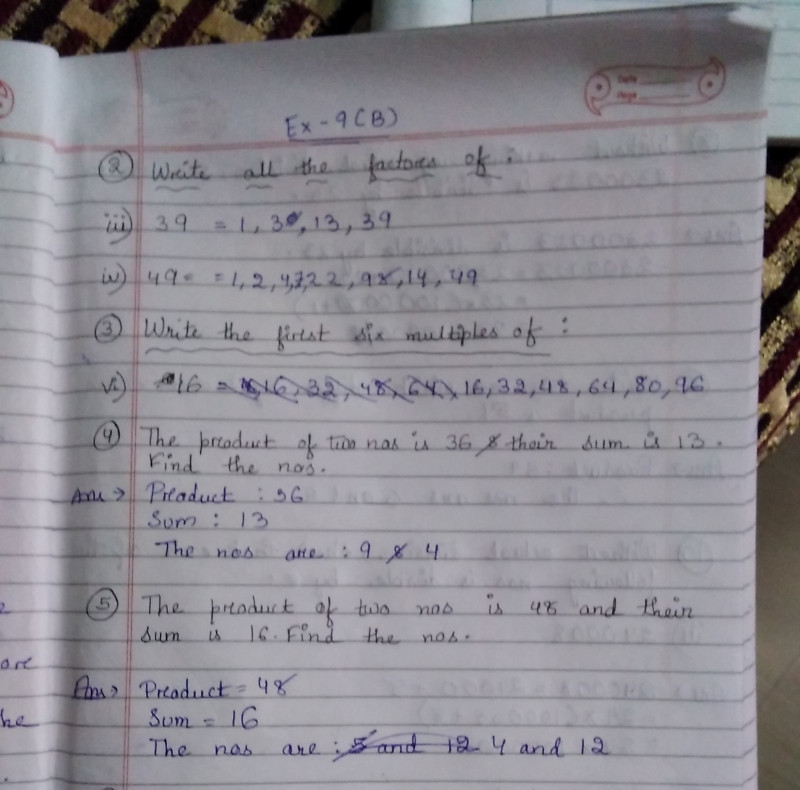 Date
Page
Ex - 9 (B)
② Write all the factors of :
iii) 39 = 1, 3, 13, 39
iv) 49 = = 1, 2, 4, 7, 22, 98, 14, 49
③ Write the first six multiples of :
vi) 16 = 16, 32, 48, 64, 16, 32, 48, 64, 80, 96
④ The product of two nos is 36 & their sum is 13.
Find the nos.
Ans → Product : 36
Sum : 13
The nos are : 9 & 4
⑤ The product of two nos is 48 and their
sum is 16. Find the nos.
Ans → Product = 48
Sum = 16
The nos are : 5 and 12 4 and 12
are
he